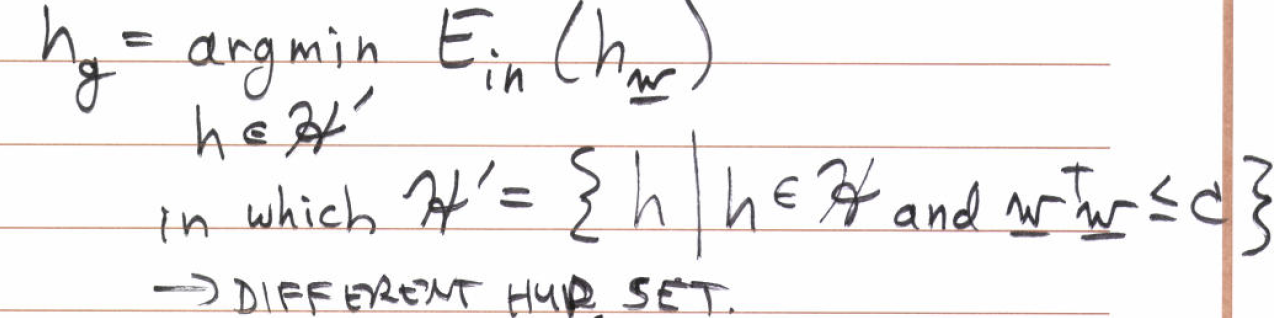 h_g = argmin E_in (h_w)
h ∈ ℋ'
in which ℋ' = { h | h ∈ ℋ and w^T w ≤ C }
→ DIFFERENT HYP. SET.